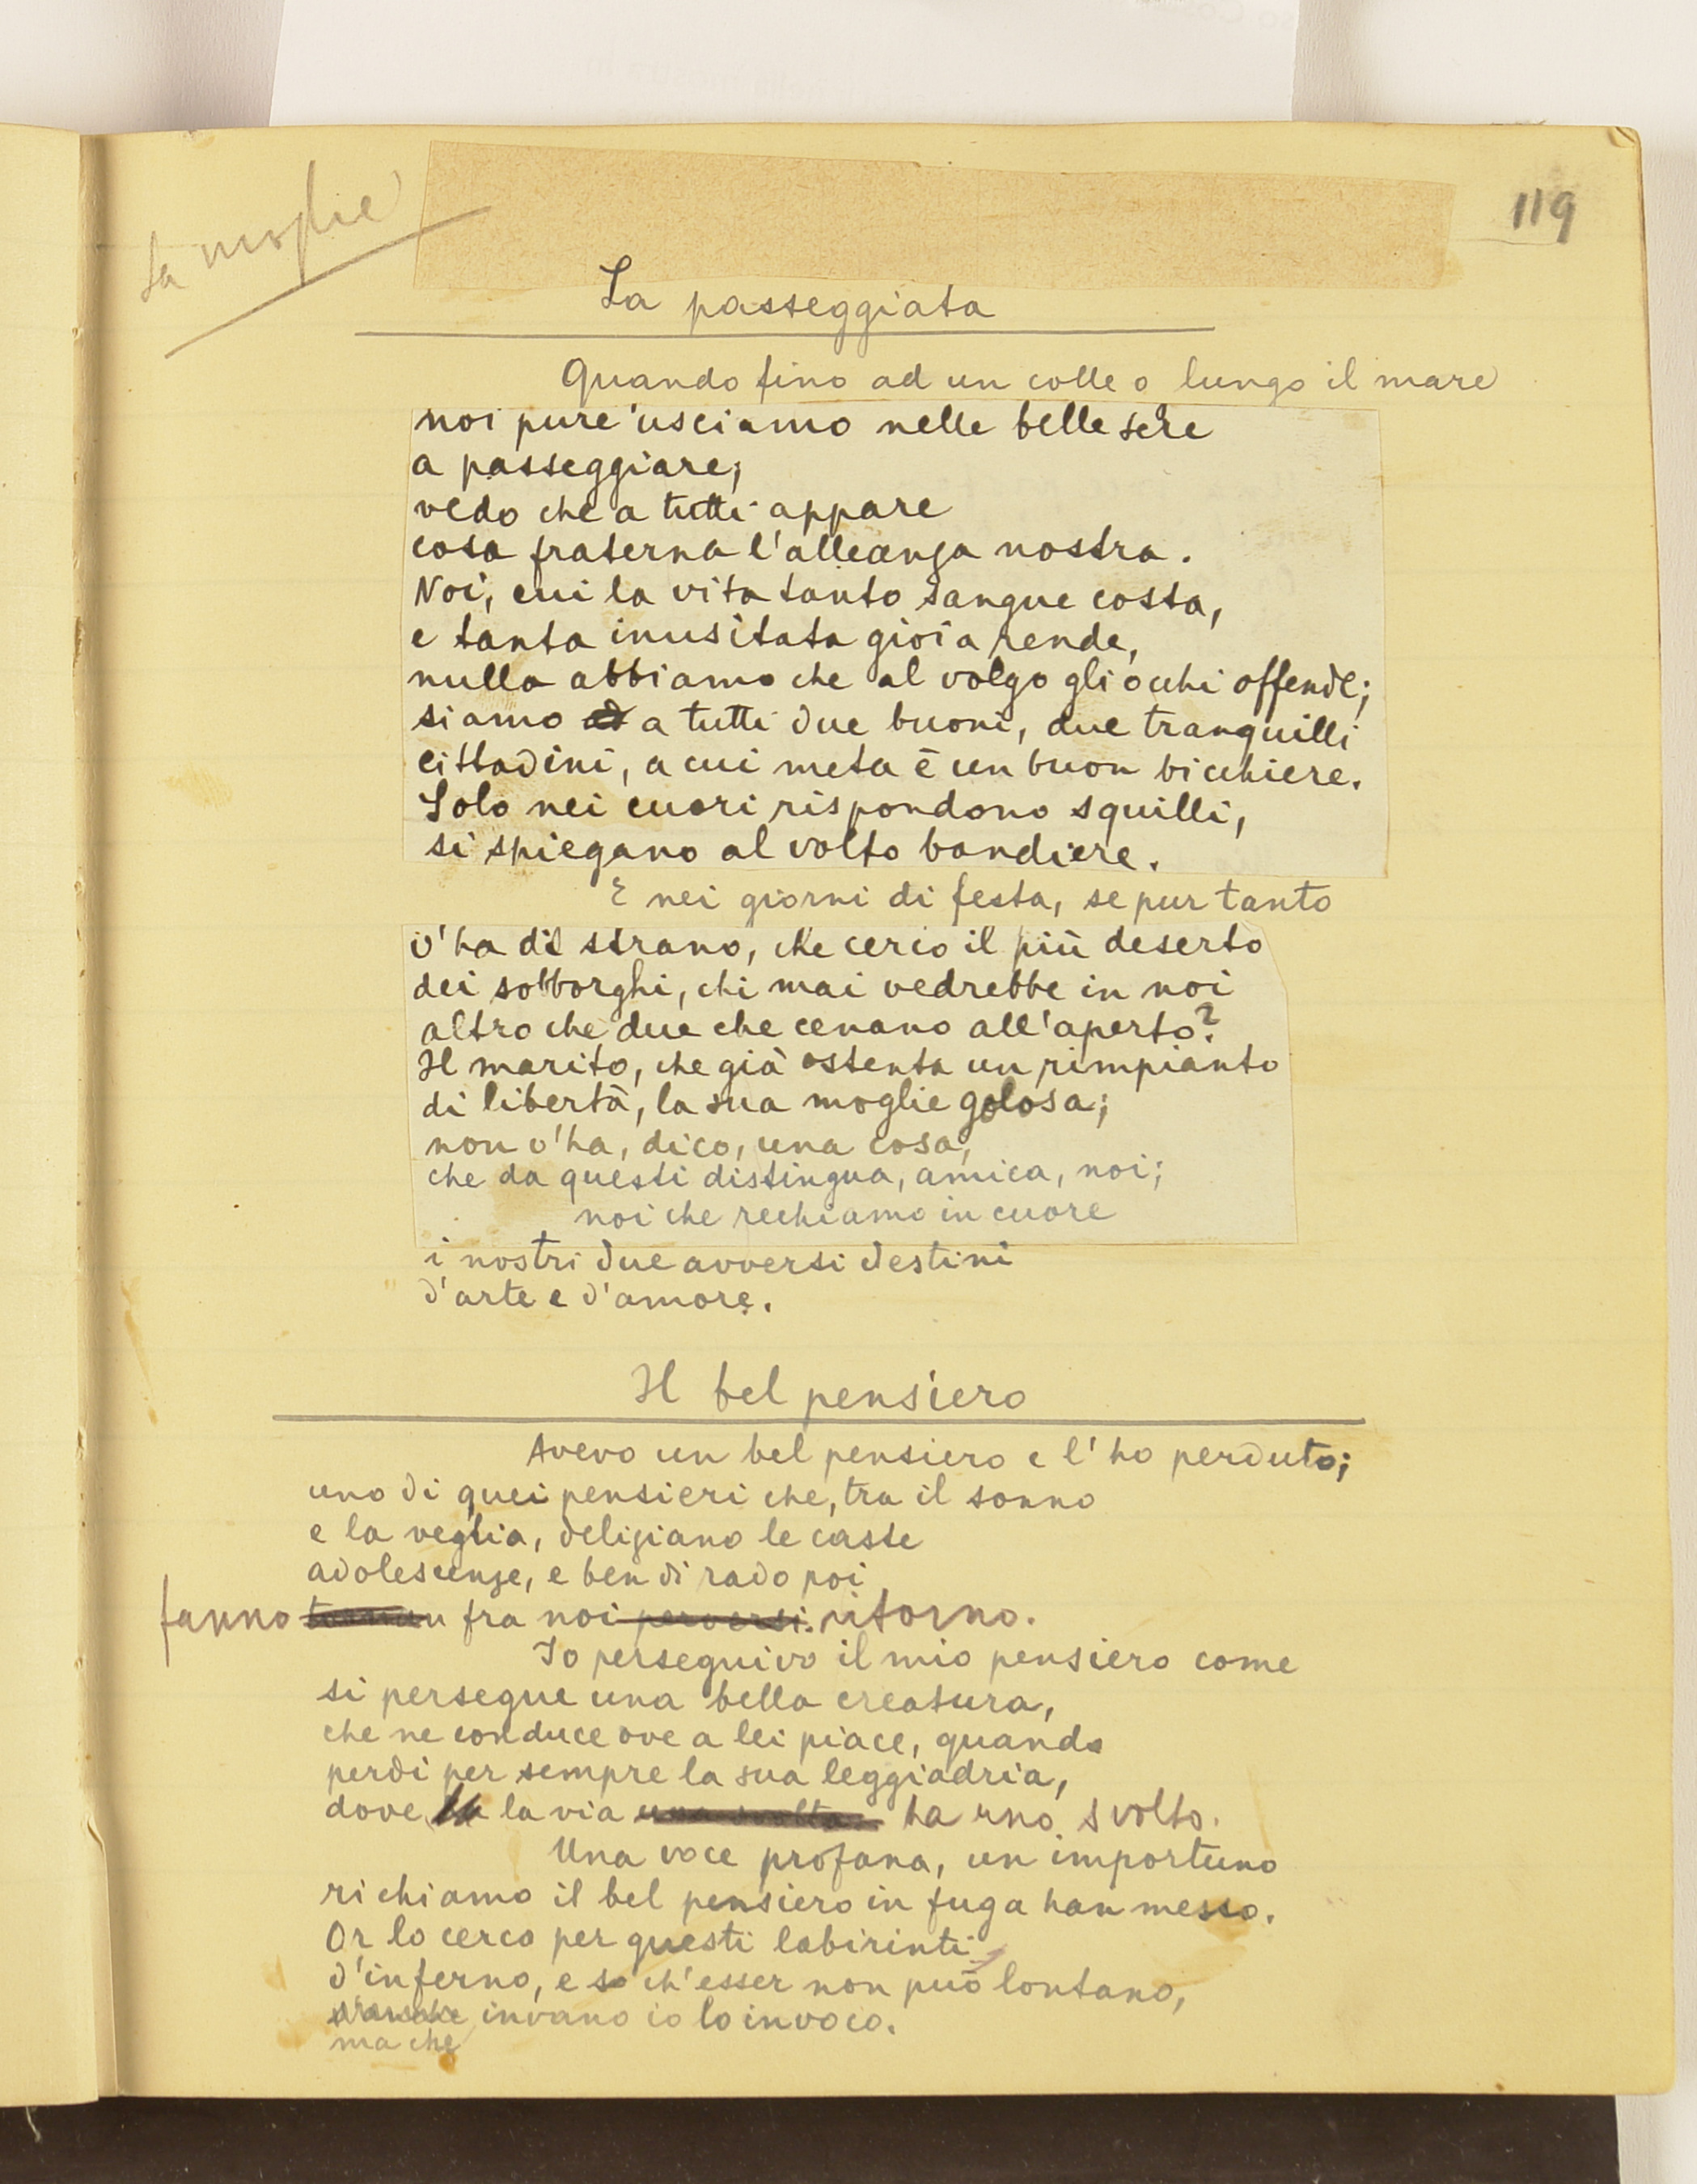 119
La moglie
La passeggiata
Quando fino ad un colle o lungo il mare
noi pure usciamo nelle belle sere
a passeggiare;
vedo che a tutti appare
cosa fraterna l'alleanza nostra.
Noi, cui la vita tanto sangue costa,
e tanta inusitata gioia rende,
nulla abbiamo che al volgo gli occhi offende;
siamo a tutti due buoni, due tranquilli
cittadini, a cui meta è un buon bicchiere.
Solo nei cuori rispondono squilli,
si spiegano al volto bandiere.
E nei giorni di festa, se pur tanto
v'ha di strano, che cerco il più deserto
dei sobborghi, chi mai vedrebbe in noi
altro che due che cenano all'aperto?
Il marito, che già ostenta un rimpianto
di libertà, la sua moglie golosa;
non v'ha, dico, una cosa,
che da questi distingua, amica, noi;
noi che rechiamo in cuore
i nostri due avversi destini
d'arte e d'amore.
Il bel pensiero
Avevo un bel pensiero e l'ho perduto;
uno di quei pensieri che, tra il sonno
e la veglia, deliziano le caste
adolescenze, e ben di rado poi
fanno fra noi perversi. ritorno.
Io perseguivo il mio pensiero come
si persegue una bella creatura,
che ne conduce ove a lei piace, quando
perdi per sempre la sua leggiadria,
dove la via una svolta ha uno svolto.
Una voce profana, un importuno
richiamo il bel pensiero in fuga han messo.
Or lo cerco per questi labirinti
d'inferno, e so ch'esser non può lontano,
invano io lo invoco.
ma che